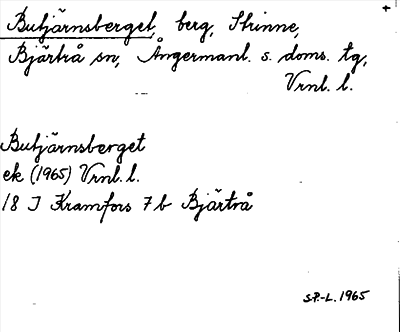 Butjärnsberget, berg, Strinne,
Bjärtrå sn, Ångermanl. s. doms. tg,
Vrnl. l.
Butjärnsberget
ek (1965) Vrnl. l.
18 J Kramfors 7 b Bjärtrå
S.P.-L. 1965